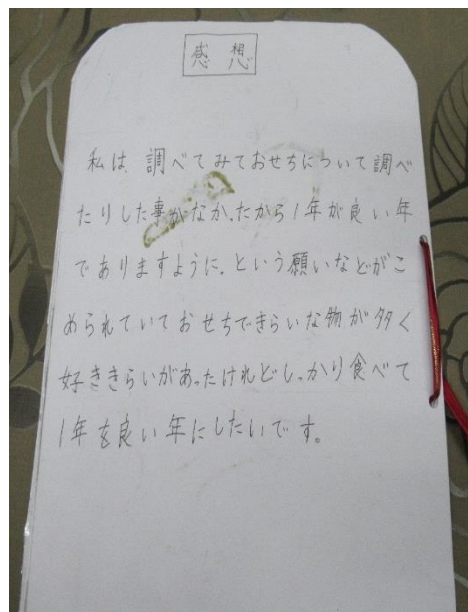 感想
私は、調べてみておせちについて調べ
たりした事がなかったから1年が良い年
でありますように。という願いなどがこ
められていておせちできらいな物が多く
好ききらいがあったけれどしっかり食べて
1年を良い年にしたいです。